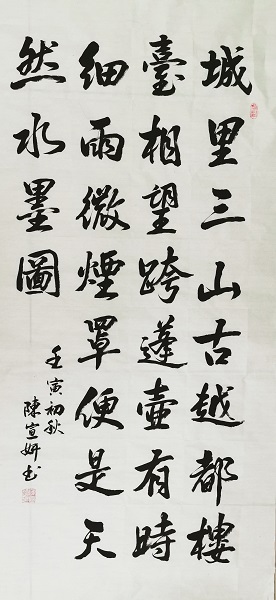 城里三山古越都樓
臺相望跨蓬壺有時
細雨微煙罩便是天
然水墨圖
壬寅初秋
陳宣妍书